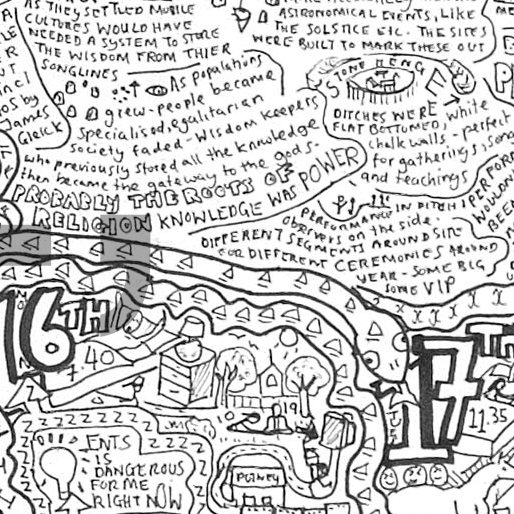 AS THEY SETTLED MOBILE
CULTURES WOULD HAVE
NEEDED A SYSTEM TO STORE
THE WISDOM FROM THIER
SONGLINES
AS Populations
grew-people became
Specialised, egalitarian
society faded-wisdom keepers
who previously stored all the knowledge
then became the gateway to the gods.
PROBABLY THE ROOTS OF
RELIGION KNOWLEDGE WAS POWER
os by
James
Gleick
ASTRONOMICAL EVENTS, LIKE
THE SOLSTICE ETC. THE SITES
WERE BUILT TO MARK THESE OUT
STONE HENGE
DITCHES WERE white
FLAT BOTTOMED,
chalk walls - perfect
for gatherings, song
and teachings
PERFORMANCE IN DITCH
OBSERVERS on the side.
DIFFERENT SEGMENTS AROUND SITE
FOR DIFFERENT CEREMONIES AROUND
YEAR - SOME BIG
SOME VIP
PERFOR
WOULDN
BEE
16TH
7.40
17TH
11.35
19
PUTNEY
ENTS
IS
DANGEROUS
FOR ME
RIGHT NOW